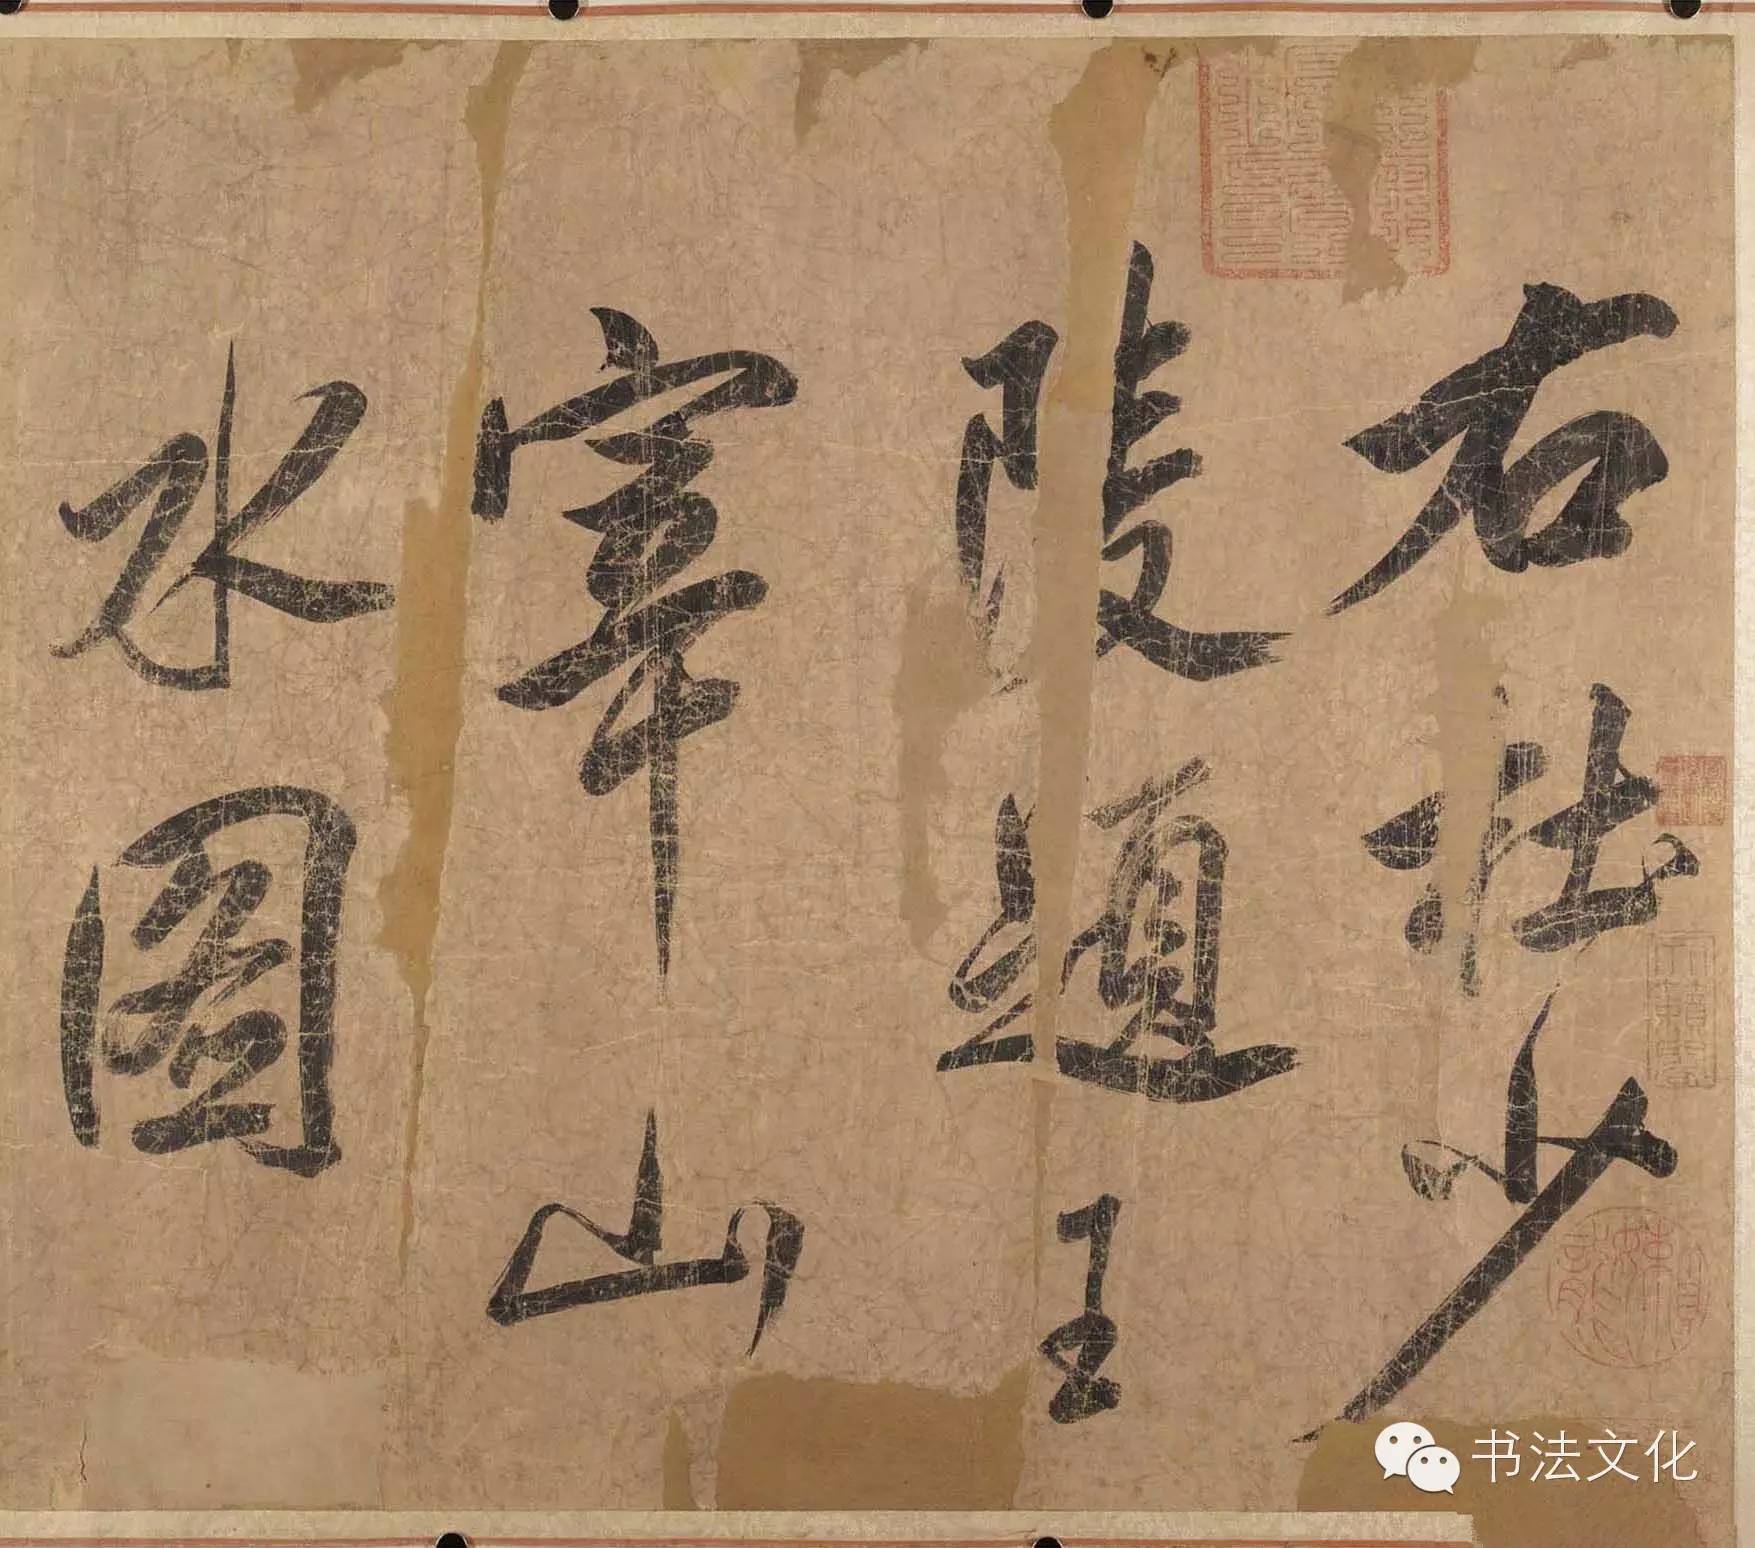 右杜少
陵題王
宰山
水圖
书法文化